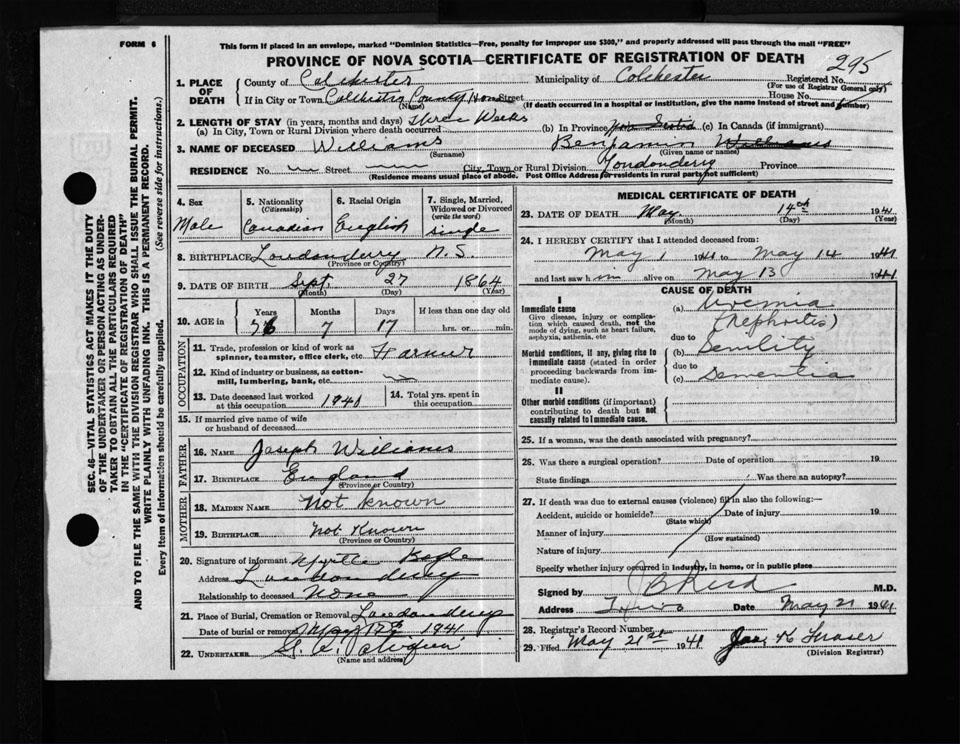 FORM 6
This form if placed in an envelope, marked "Dominion Statistics—Free, penalty for improper use $300," and properly addressed will pass through the mail "FREE"
PROVINCE OF NOVA SCOTIA—CERTIFICATE OF REGISTRATION OF DEATH
295
1. PLACE OF DEATH
County of Colchester
Municipality of Colchester
Registered No.
(For use of Registrar General only)
If in City or Town Colchester County Home Street
House No.
(Name)
(If death occurred in a hospital or institution, give the name instead of street and number)
2. LENGTH OF STAY (in years, months and days) Three Weeks
(a) In City, Town or Rural Division where death occurred
(b) In Province Nova Scotia (c) In Canada (if immigrant)
3. NAME OF DECEASED Williams Benjamin Williams
(Surname) (Given name or names)
RESIDENCE No. Street City, Town or Rural Division Londonderry Province
(Residence means usual place of abode. Post Office Address for residents in rural parts not sufficient)
4. Sex
Male
5. Nationality
(Citizenship)
Canadian
6. Racial Origin
English
7. Single, Married, Widowed or Divorced
(write the word)
single
8. BIRTHPLACE Londonderry N.S.
(Province or Country)
9. DATE OF BIRTH Sept. 27 1864
(Month) (Day) (Year)
10. AGE in Years Months Days If less than one day old
76 7 17 hrs. or min.
OCCUPATION
11. Trade, profession or kind of work as spinner, teamster, office clerk, etc. Farmer
12. Kind of industry or business, as cotton-mill, lumbering, bank, etc.
13. Date deceased last worked at this occupation 1940
14. Total yrs. spent in this occupation
15. If married give name of wife or husband of deceased
FATHER
16. NAME Joseph Williams
17. BIRTHPLACE England
(Province or Country)
MOTHER
18. MAIDEN NAME Not known
19. BIRTHPLACE Not Known
(Province or Country)
20. Signature of informant Myrtle
Address Londonderry
Relationship to deceased None
21. Place of Burial, Cremation or Removal Londonderry
Date of burial or removal May 17th 1941
22. UNDERTAKER
(Name and address)
MEDICAL CERTIFICATE OF DEATH
23. DATE OF DEATH May 14th 1941
(Month) (Day) (Year)
24. I HEREBY CERTIFY that I attended deceased from:
May 1 1941 to May 14 1941
and last saw h im alive on May 13 1941
CAUSE OF DEATH
I
Immediate cause
Give disease, injury or complication which caused death, not the mode of dying, such as heart failure, asphyxia, asthenia, etc
(a) Uremia
(Nephritis)
due to
Morbid conditions, if any, giving rise to immediate cause (stated in order proceeding backwards from immediate cause).
(b) Senility
due to
(c) Dementia
II
Other morbid conditions (if important) contributing to death but not causally related to immediate cause.
25. If a woman, was the death associated with pregnancy?
26. Was there a surgical operation? Date of operation 19
State findings Was there an autopsy?
27. If death was due to external causes (violence) fill in also the following:—
Accident, suicide or homicide? Date of injury 19
(State which)
Manner of injury
(How sustained)
Nature of injury
Specify whether injury occurred in industry, in home, or in public place
Signed by M.D.
Address Truro Date May 21 1941
28. Registrar's Record Number
29. Filed May 21st 1941
Fraser
(Division Registrar)
SEC. 46—VITAL STATISTICS ACT MAKES IT THE DUTY
OF THE UNDERTAKER OR PERSON ACTING AS UNDERTAKER TO OBTAIN ALL THE PARTICULARS REQUIRED
IN THE "CERTIFICATE OF REGISTRATION OF DEATH"
AND TO FILE THE SAME WITH THE DIVISION REGISTRAR WHO SHALL ISSUE THE BURIAL PERMIT.
WRITE PLAINLY WITH UNFADING INK. THIS IS A PERMANENT RECORD.
Every item of information should be carefully supplied. (See reverse side for instructions.)